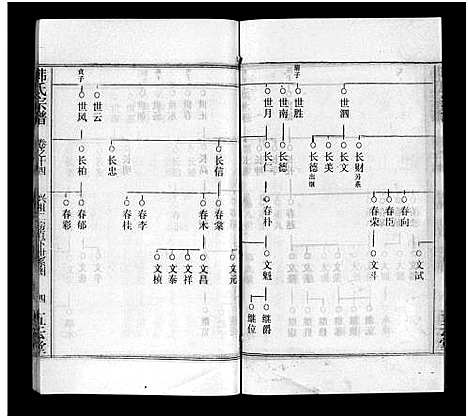 嗣子
世泗
世胜
世南
世月
长财 另系
长文
长美
长德 出继
长德
长仁
春向
春臣
春荣
春朴
文试
文斗
文魁
继爵
继位
贡子
世云
世凤
长信
长忠
长柏
春棠
春木
春李
春桂
春郁
春彩
文元
文昌
文祥
文泰
文桢
韩氏宗谱
卷之十四
四